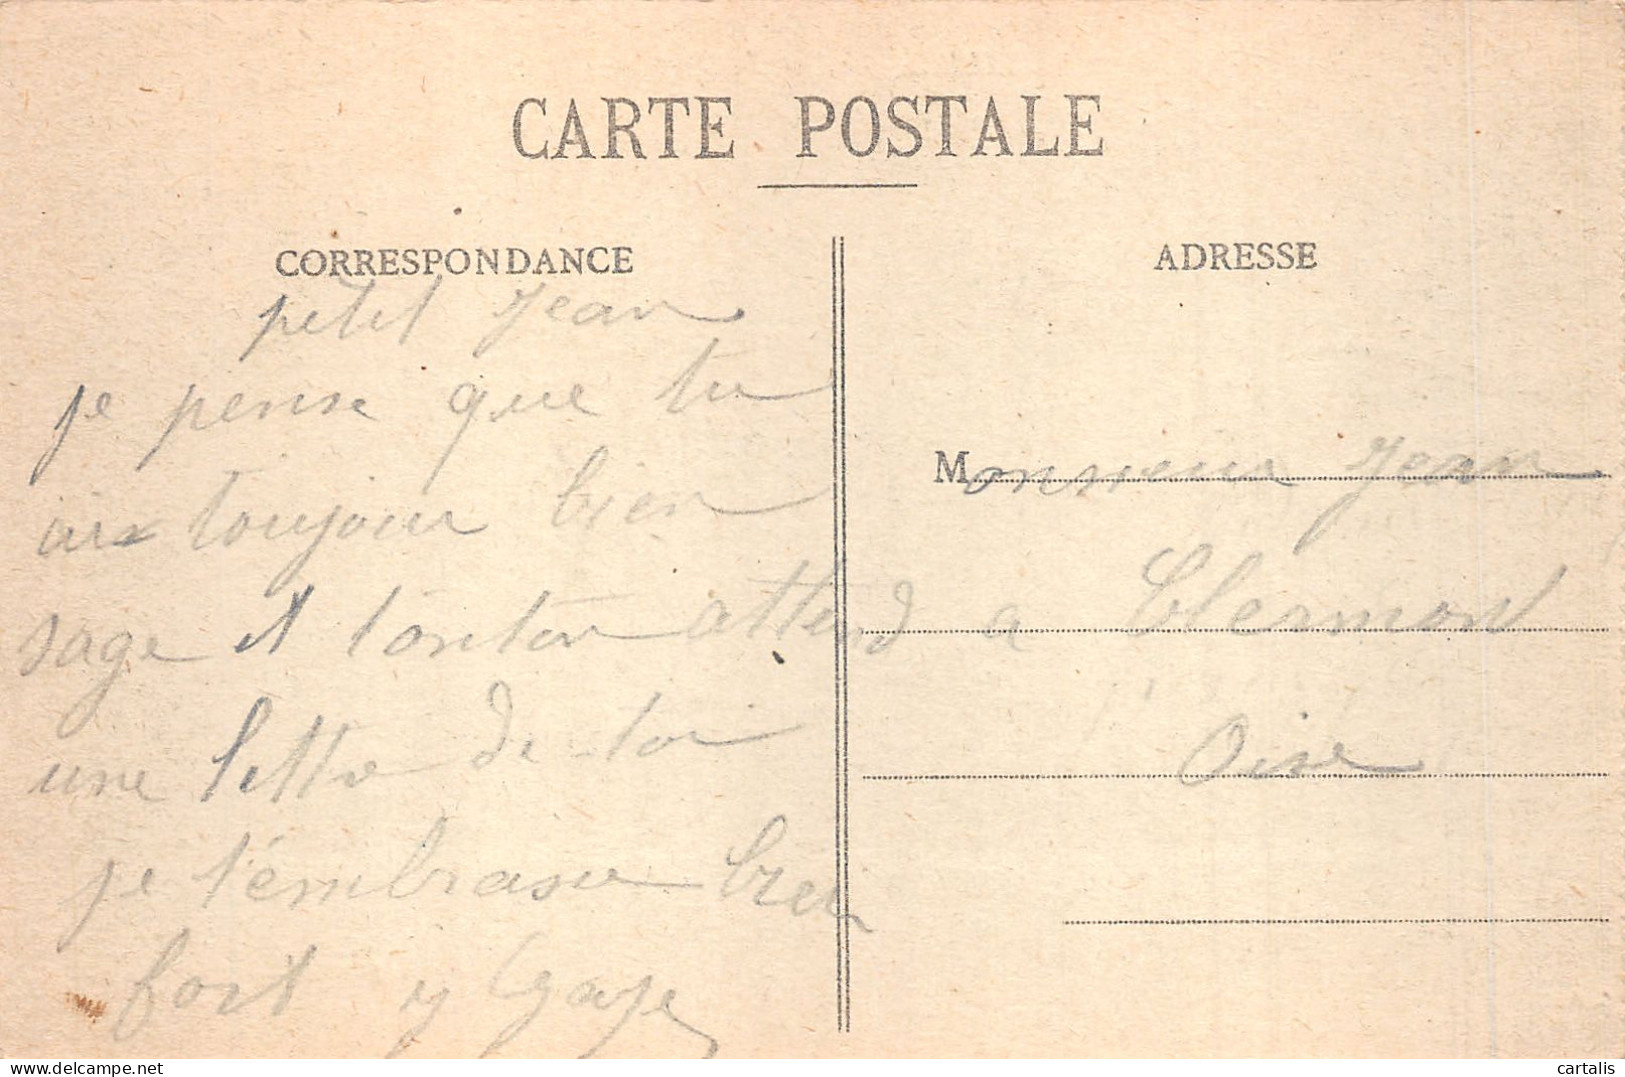 CARTE POSTALE
CORRESPONDANCE
petit Jean
je pense que tu
aix toujour bien
sage et tonton attend
une lettre de toi
je t'émbrasse bien
fort
ADRESSE
Monsieur Jean
a Clermont
Oise
delcampe.net
cartalis